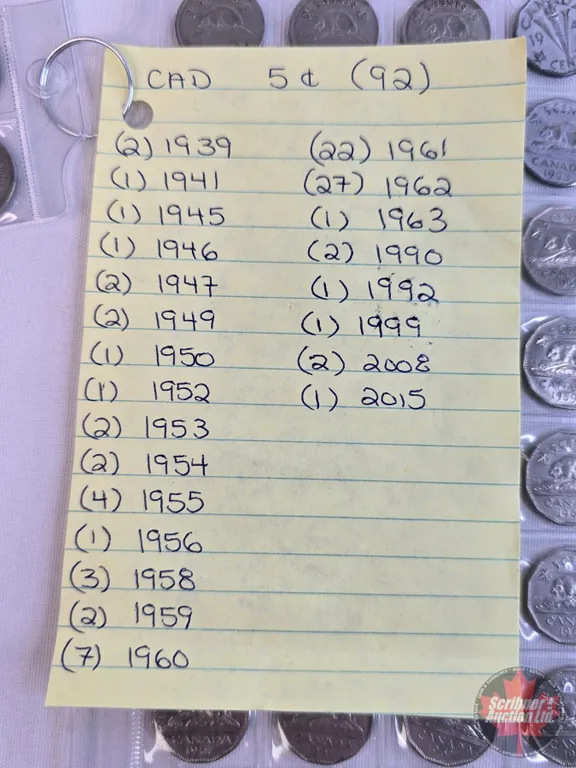 CAD 5¢ (92)
(2) 1939
(1) 1941
(1) 1945
(1) 1946
(2) 1947
(2) 1949
(1) 1950
(1) 1952
(2) 1953
(2) 1954
(4) 1955
(1) 1956
(3) 1958
(2) 1959
(7) 1960
(22) 1961
(27) 1962
(1) 1963
(2) 1990
(1) 1992
(1) 1999
(2) 2008
(1) 2015
CANADA
Scribner's
Auction Ltd.